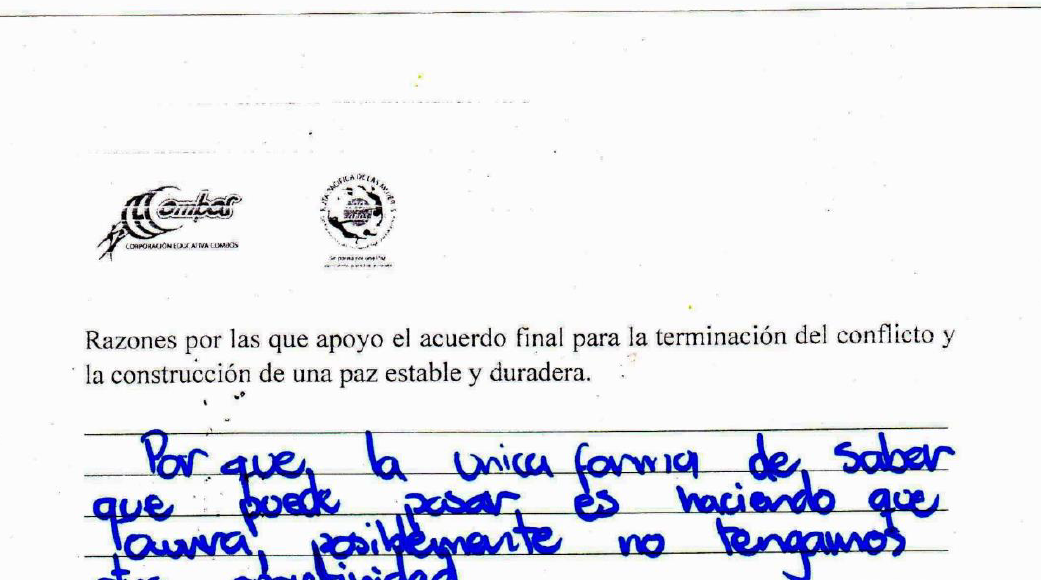 Combos
CORPORACIÓN EDUCATIVA COMBOS
RUTA PACÍFICA DE LAS MUJERES
Razones por las que apoyo el acuerdo final para la terminación del conflicto y
la construcción de una paz estable y duradera.
Por que, la unica forma de saber
que puede pasar, es haciendo que
posiblemente no tengamos
otra